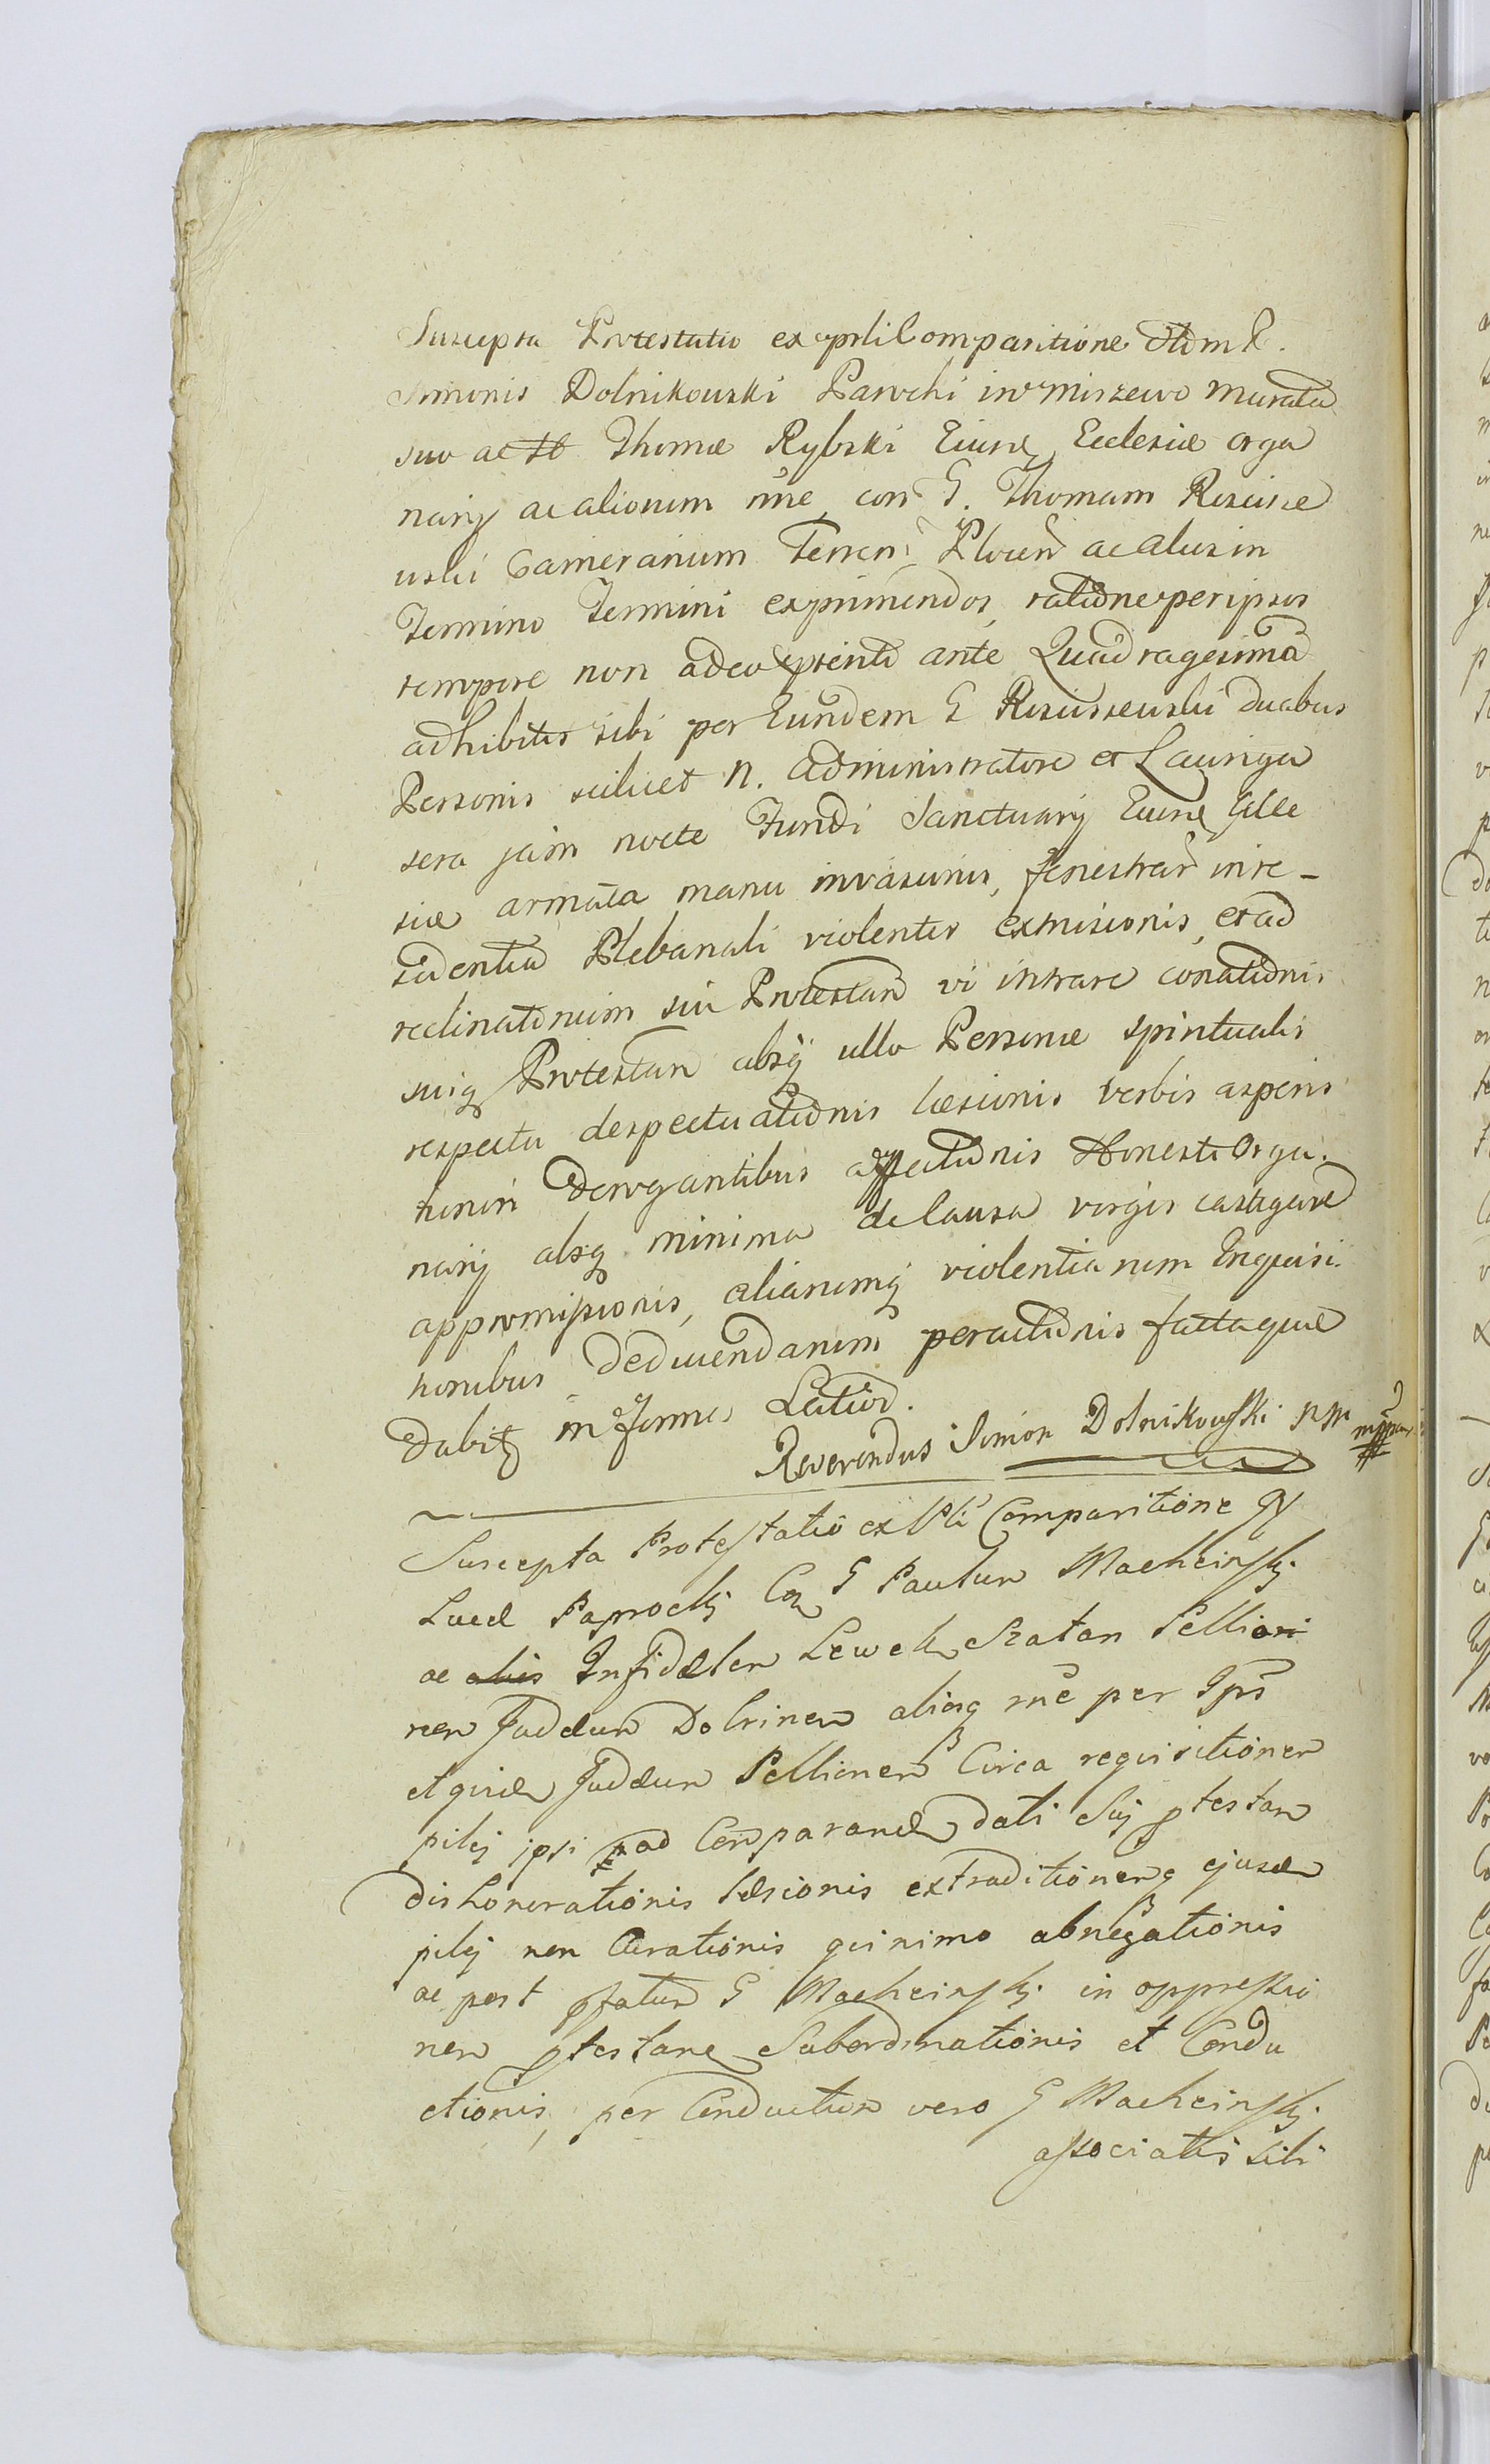 Suscepta Protestatio ex prsli Comparitione Adm R.
Simonis Dolnikowski Parochi in Miszewo Murata
suo ac H Thomæ Rybski Eiusq Ecclesiæ orga
narij ac aliorum nne, con G. Thomam Roscisze
wski Camerarium Terren Plocen ac alios in
Termino Termini exprimendos, ratione per ipsos
tempore non adeo præterito ante Quadragesima
adhibitis sibi per Eundem G Rosciszewski duabus
Personis scilicet N. Administratore et Lauriga
sera jam nocte Fundi Sanctuarij Eiusq Eccle
siæ armata manu invasionis, fenestrar in re-
sidentia Plebanali violenter exmisionis, et ad
reclinatorium sui Protestan vi intrare conationis
suiq Protestan absq ullo Personæ spiritualis
respectu despectuationis læsionis verbis asperis
honori derogantibus affectionis Honesti Orga-
narij absq minima de causa virgis castigare
appromissionis, aliarumq violentiarum Inquisi-
tionibus deducendarum peractionis factaque
Dabitq in forma Latior.
Reverendus Simon Dolnikowski PM mppria
Suscepta Protestatio ex Psli Comparitione G
Lucæ Paprocki Con G Paulum Machcinski
ac aliis Infidelem Lewek Szatan Pellion
nem Judæum Dobrinen aliosq rne per Ips
et quidem Judæum Pellionem Circa requisitionem
pilej ipsi ad Comparand dati Sui ptestan
dishonorationis læsionis extraditionemq ejusd
pilej non Curationis quinimo abnegationis
ac post pfatum G Machcinski in oppressio
nem ptestane Subordinationis et Condu
ctionis, per Conductum vero G Machcinski
associatis sibi